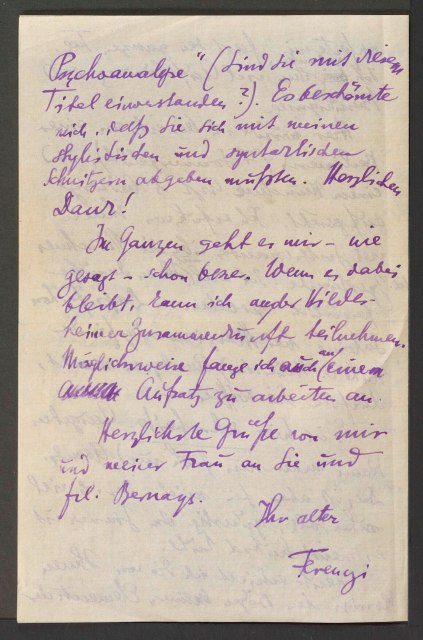 Psychoanalyse" (Sind Sie mit diesem
Titel einverstanden?). Es beschämte
mich, daß Sie sich mit meinen
stylistischen und syntaktischen
Schnitzern abgeben mußten. Herzlichen
Dank!
Im Ganzen geht es mir – wie
gesagt – schon besser. Wenn es dabei
bleibt, kann ich an der Hildes-
heimer Zusammenkunft teilnehmen.
Möglichsweise fange ich auch an einem
Aufsatz zu arbeiten an.
Herzlichste Grüße von mir
und meiner Frau an Sie und
Frl. Bernays.
Ihr alter
Ferenczi